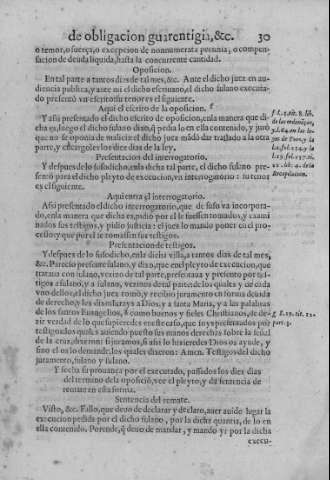 de obligacion guarentigia, &c. 30
o temor, o fuerça, o excepcion de nonnumerata pecunia, o compen-
sacion de deuda liquida, hasta la concurrente cantidad.
Oposicion.
En tal parte a tantos dias de tal mes, &c. Ante el dicho juez en au-
diencia publica, y ante mi el dicho escriuano, el dicho fulano executa-
do presentò vn escrito su tenor es el siguiente.
Aqui el escrito de la oposicion. f
Y assi presentado el dicho escrito de oposicion, en la manera que di-
cha es, luego el dicho fulano dixo, q pedia lo en ella contenido, y juró
que no se oponia de malicia: el dicho juez mãdò dar traslado a la otra
parte, y encargoles los diez dias de la ley.
Presentacion del interrogatorio.
Y despues de lo susodicho, en la dicha tal parte, el dicho fulano pre-
sentò para el dicho pleyto de execucion, vn interrogatorio: su tenor
es el siguiente.
Aqui entra el interrogatorio.
Assi presentado el dicho interrogatorio, que de suso va incorpora-
do, en la manera que dicha es, pidio por el le fuessen tomados, y exami
nados sus testigos, y pidio justicia: el juez lo mandò poner en el pro-
cesso y que por el se tomassen sus testigos.
Presentacion de testigos.
Y despues de lo susodicho, en la dicha villa, a tantos dias de tal mes,
&c. Parecio presente fulano, y dixo, que en el pleyto de execucion, que
trataua con fulano, vezino de tal parte, presentaua y presentò por tes-
tigos a fulano, y a fulano, vezinos de tal parte, de los quales y de cada
vno dellos, el dicho juez tomò, y recibio juramento en forma deuida
de derecho, y los dixo jurays a Dios, y a santa Maria, y a las palabras
de los santos Euangelios, g como buenos y fieles Christianos, de de-
zir verdad de lo que supieredes en este caso, que soys presentados por
testigos: los quales auiendo puesto sus manos derechas sobre la señal
de la cruz, dixeron: si juramos, si assi lo hizieredes Dios os ayude, y
sino el os lo demande, los quales dixeron: Amen. Testigos del dicho
juramento, fulano y fulano.
Y fecha su prouança por el executado, passados los diez dias
del termino de la oposiciõ, vee el pleyto, y da sentencia de
remate en esta forma.
Sentencia del remate.
Visto, &c. Fallo, que deuo de declarar y declaro, auer auido lugar la
execucion pedida por el dicho fulano, por la dicha quantia, de lo en
ella contenido. Porende, q deuo de mandar, y mando yr por la dicha
execu-
f L. 4. tit. 8. lib.